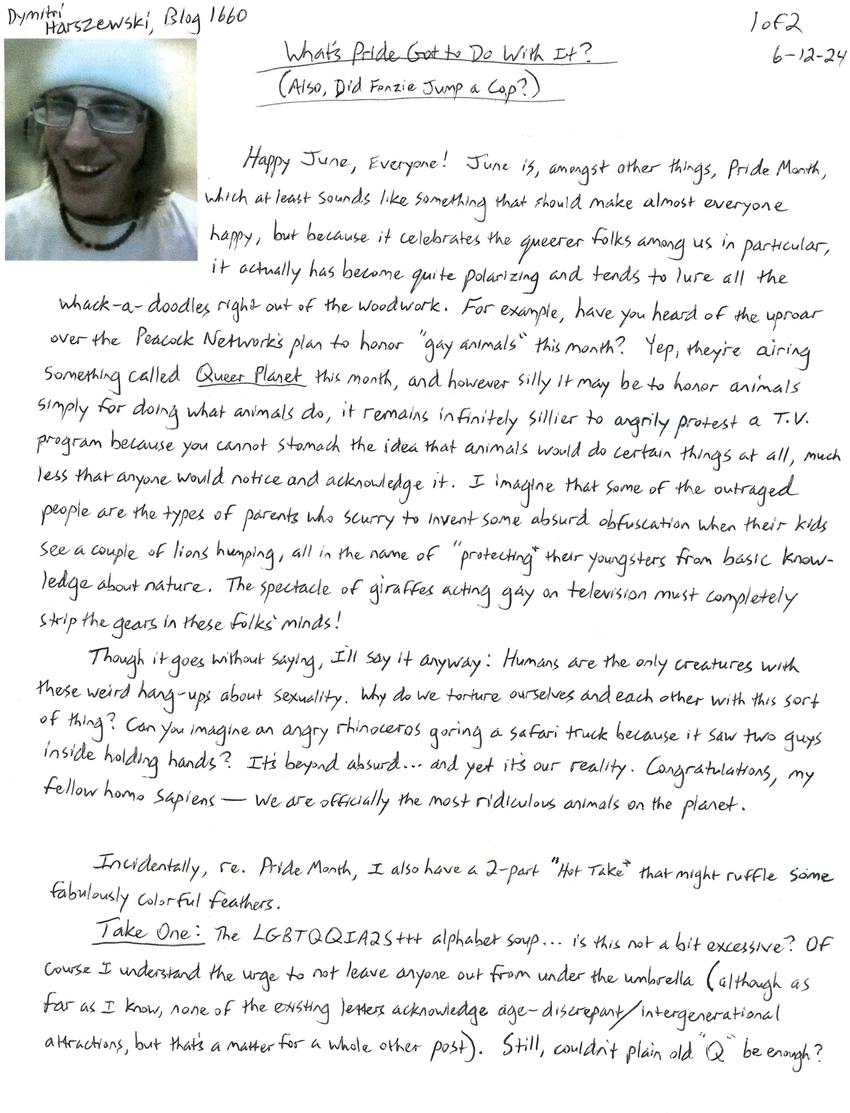 Dymitri
Harszewski, Blog 1660
1 of 2
6-12-24
What's Pride Got to Do With It?
(Also, Did Fonzie Jump a Cop?)
Happy June, Everyone! June is, amongst other things, Pride Month,
which at least sounds like something that should make almost everyone
happy, but because it celebrates the queerer folks among us in particular,
it actually has become quite polarizing and tends to lure all the
whack-a-doodles right out of the woodwork. For example, have you heard of the uproar
over the Peacock Network's plan to honor "gay animals" this month? Yep, they're airing
something called Queer Planet this month, and however silly it may be to honor animals
simply for doing what animals do, it remains infinitely sillier to angrily protest a T.V.
program because you cannot stomach the idea that animals would do certain things at all, much
less that anyone would notice and acknowledge it. I imagine that some of the outraged
people are the types of parents who scurry to invent some absurd obfuscation when their kids
see a couple of lions humping, all in the name of "protecting" their youngsters from basic know-
ledge about nature. The spectacle of giraffes acting gay on television must completely
strip the gears in these folks' minds!
Though it goes without saying, I'll say it anyway: Humans are the only creatures with
these weird hang-ups about sexuality. Why do we torture ourselves and each other with this sort
of thing? Can you imagine an angry rhinoceros goring a safari truck because it saw two guys
inside holding hands? It's beyond absurd... and yet it's our reality. Congratulations, my
fellow homo sapiens — we are officially the most ridiculous animals on the planet.
Incidentally, re. Pride Month, I also have a 2-part "Hot Take" that might ruffle some
fabulously colorful feathers.
Take One: The LGBTQQIA2S+++ alphabet soup... is this not a bit excessive? Of
course I understand the urge to not leave anyone out from under the umbrella (although as
far as I know, none of the existing letters acknowledge age-discrepant/intergenerational
attractions, but that's a matter for a whole other post). Still, couldn't plain old "Q" be enough?